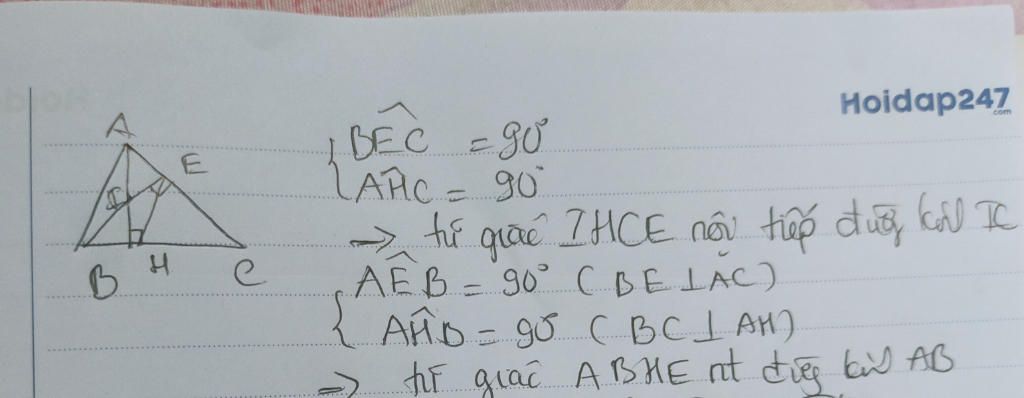 Hoidap247
.com
A
E
I
B H C
{ BÊC = 90°
AĤC = 90°
=> tứ giác IHCE nội tiếp đường kính IC
{ AÊB = 90° (BE⊥AC)
AĤB = 90° (BC⊥AH)
=> tứ giác ABHE nt đường kính AB